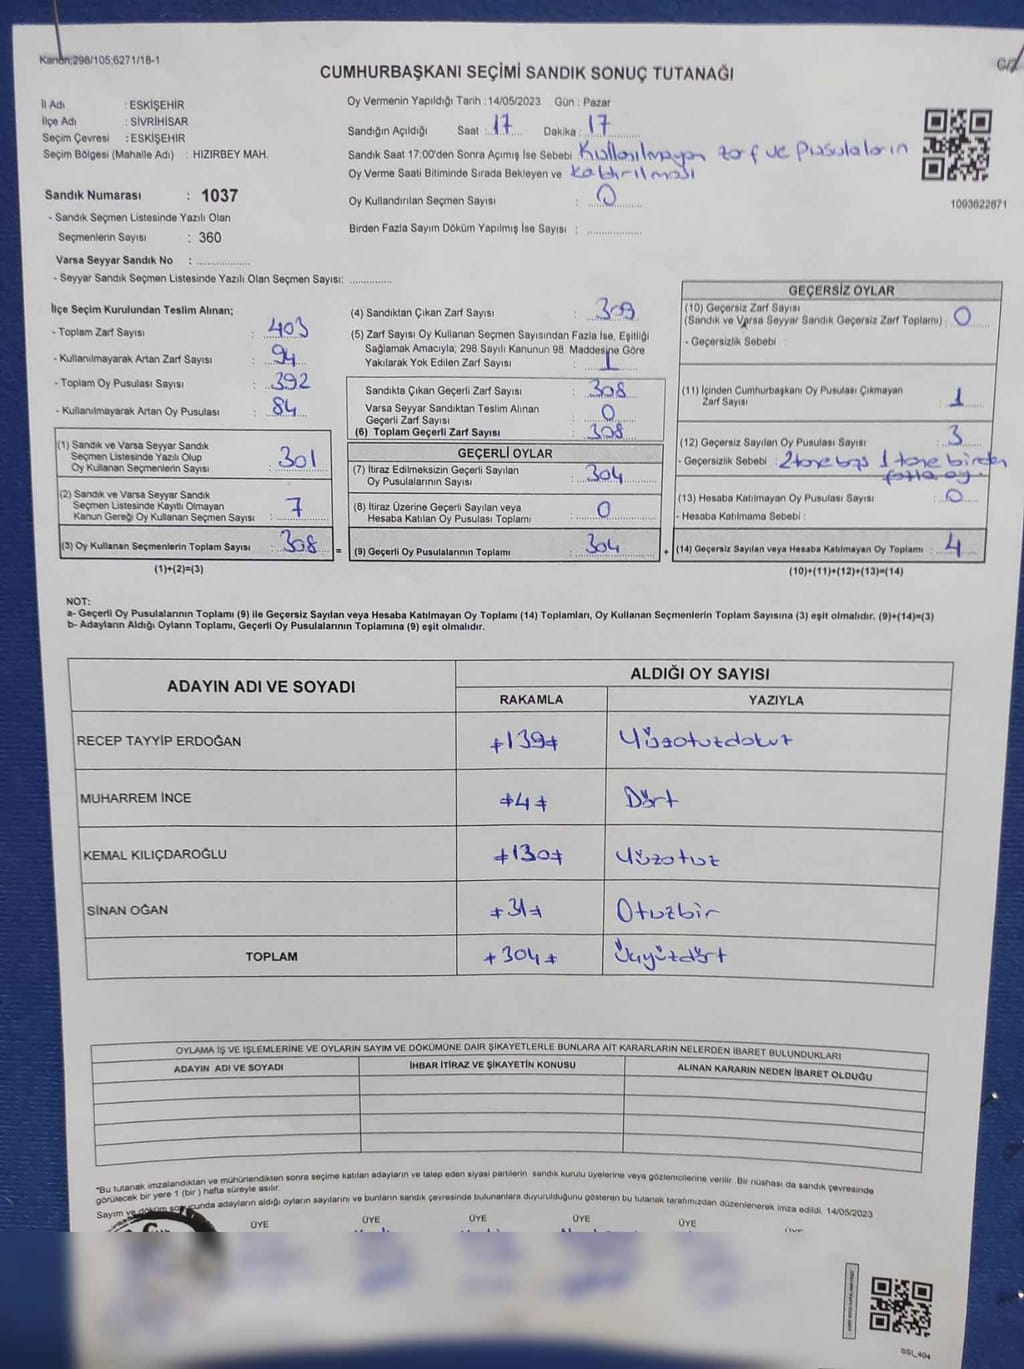 Kanun;298/105;6271/18-1
C1/
CUMHURBAŞKANI SEÇİMİ SANDIK SONUÇ TUTANAĞI
İl Adı : ESKİŞEHİR
İlçe Adı : SİVRİHİSAR
Seçim Çevresi : ESKİŞEHİR
Seçim Bölgesi (Mahalle Adı) : HIZIRBEY MAH.
Sandık Numarası : 1037
- Sandık Seçmen Listesinde Yazılı Olan
Seçmenlerin Sayısı : 360
Varsa Seyyar Sandık No :
- Seyyar Sandık Seçmen Listesinde Yazılı Olan Seçmen Sayısı:
Oy Vermenin Yapıldığı Tarih : 14/05/2023 Gün : Pazar
Sandığın Açıldığı Saat : 17 Dakika : 17
Sandık Saat 17:00'den Sonra Açımış İse Sebebi Kullanılmayan zarf ve pusulaların
Oy Verme Saati Bitiminde Sırada Bekleyen ve kaldırılması
Oy Kullandırılan Seçmen Sayısı : 0
Birden Fazla Sayım Döküm Yapılmış İse Sayısı :
1093622871
İlçe Seçim Kurulundan Teslim Alınan;
- Toplam Zarf Sayısı : 403
- Kullanılmayarak Artan Zarf Sayısı : 94
- Toplam Oy Pusulası Sayısı : 392
- Kullanılmayarak Artan Oy Pusulası : 84
(1) Sandık ve Varsa Seyyar Sandık
Seçmen Listesinde Yazılı Olup
Oy Kullanan Seçmenlerin Sayısı : 301
(2) Sandık ve Varsa Seyyar Sandık
Seçmen Listesinde Kayıtlı Olmayan
Kanun Gereği Oy Kullanan Seçmen Sayısı : 7
(3) Oy Kullanan Seçmenlerin Toplam Sayısı : 308 =
(1)+(2)=(3)
(4) Sandıktan Çıkan Zarf Sayısı : 309
(5) Zarf Sayısı Oy Kullanan Seçmen Sayısından Fazla İse, Eşitliği
Sağlamak Amacıyla; 298 Sayılı Kanunun 98. Maddesine Göre
Yakılarak Yok Edilen Zarf Sayısı : 1
Sandıkta Çıkan Geçerli Zarf Sayısı : 308
Varsa Seyyar Sandıktan Teslim Alınan
Geçerli Zarf Sayısı : 0
(6) Toplam Geçerli Zarf Sayısı : 308
GEÇERLİ OYLAR
(7) İtiraz Edilmeksizin Geçerli Sayılan
Oy Pusulalarının Sayısı : 304
(8) İtiraz Üzerine Geçerli Sayılan veya
Hesaba Katılan Oy Pusulası Toplamı : 0
(9) Geçerli Oy Pusulalarının Toplamı : 304 +
GEÇERSİZ OYLAR
(10) Geçersiz Zarf Sayısı
(Sandık ve Varsa Seyyar Sandık Geçersiz Zarf Toplamı) : 0
- Geçersizlik Sebebi :
(11) İçinden Cumhurbaşkanı Oy Pusulası Çıkmayan
Zarf Sayısı : 1
(12) Geçersiz Sayılan Oy Pusulası Sayısı : 3
- Geçersizlik Sebebi : 2 tane boş 1 tane birden
fazla oy
(13) Hesaba Katılmayan Oy Pusulası Sayısı : 0
- Hesaba Katılmama Sebebi :
(14) Geçersiz Sayılan veya Hesaba Katılmayan Oy Toplamı : 4
(10)+(11)+(12)+(13)=(14)
NOT:
a- Geçerli Oy Pusulalarının Toplamı (9) ile Geçersiz Sayılan veya Hesaba Katılmayan Oy Toplamı (14) Toplamları, Oy Kullanan Seçmenlerin Toplam Sayısına (3) eşit olmalıdır. (9)+(14)=(3)
b- Adayların Aldığı Oyların Toplamı, Geçerli Oy Pusulalarının Toplamına (9) eşit olmalıdır.
ADAYIN ADI VE SOYADI
ALDIĞI OY SAYISI
RAKAMLA YAZIYLA
RECEP TAYYİP ERDOĞAN ≠139≠ Yüzotuzdokuz
MUHARREM İNCE ≠4≠ Dört
KEMAL KILIÇDAROĞLU ≠130≠ Yüzotuz
SİNAN OĞAN ≠31≠ Otuzbir
TOPLAM ≠304≠ Üçyüzdört
OYLAMA İŞ VE İŞLEMLERİNE VE OYLARIN SAYIM VE DÖKÜMÜNE DAİR ŞİKAYETLERLE BUNLARA AİT KARARLARIN NELERDEN İBARET BULUNDUKLARI
ADAYIN ADI VE SOYADI İHBAR İTİRAZ VE ŞİKAYETİN KONUSU ALINAN KARARIN NEDEN İBARET OLDUĞU
*Bu tutanak imzalandıktan ve mühürlendikten sonra seçime katılan adayların ve talep eden siyasi partilerin sandık kurulu üyelerine veya gözlemcilerine verilir. Bir nüshası da sandık çevresinde
görülecek bir yere 1 (bir) hafta süreyle asılır.
Sayım ve döküm sonucunda adayların aldığı oyların sayılarını ve bunların sandık çevresinde bulunanlara duyurulduğunu gösteren bu tutanak tarafımızdan düzenlenerek imza edildi. 14/05/2023
ÜYE ÜYE ÜYE ÜYE ÜYE
SSI_404